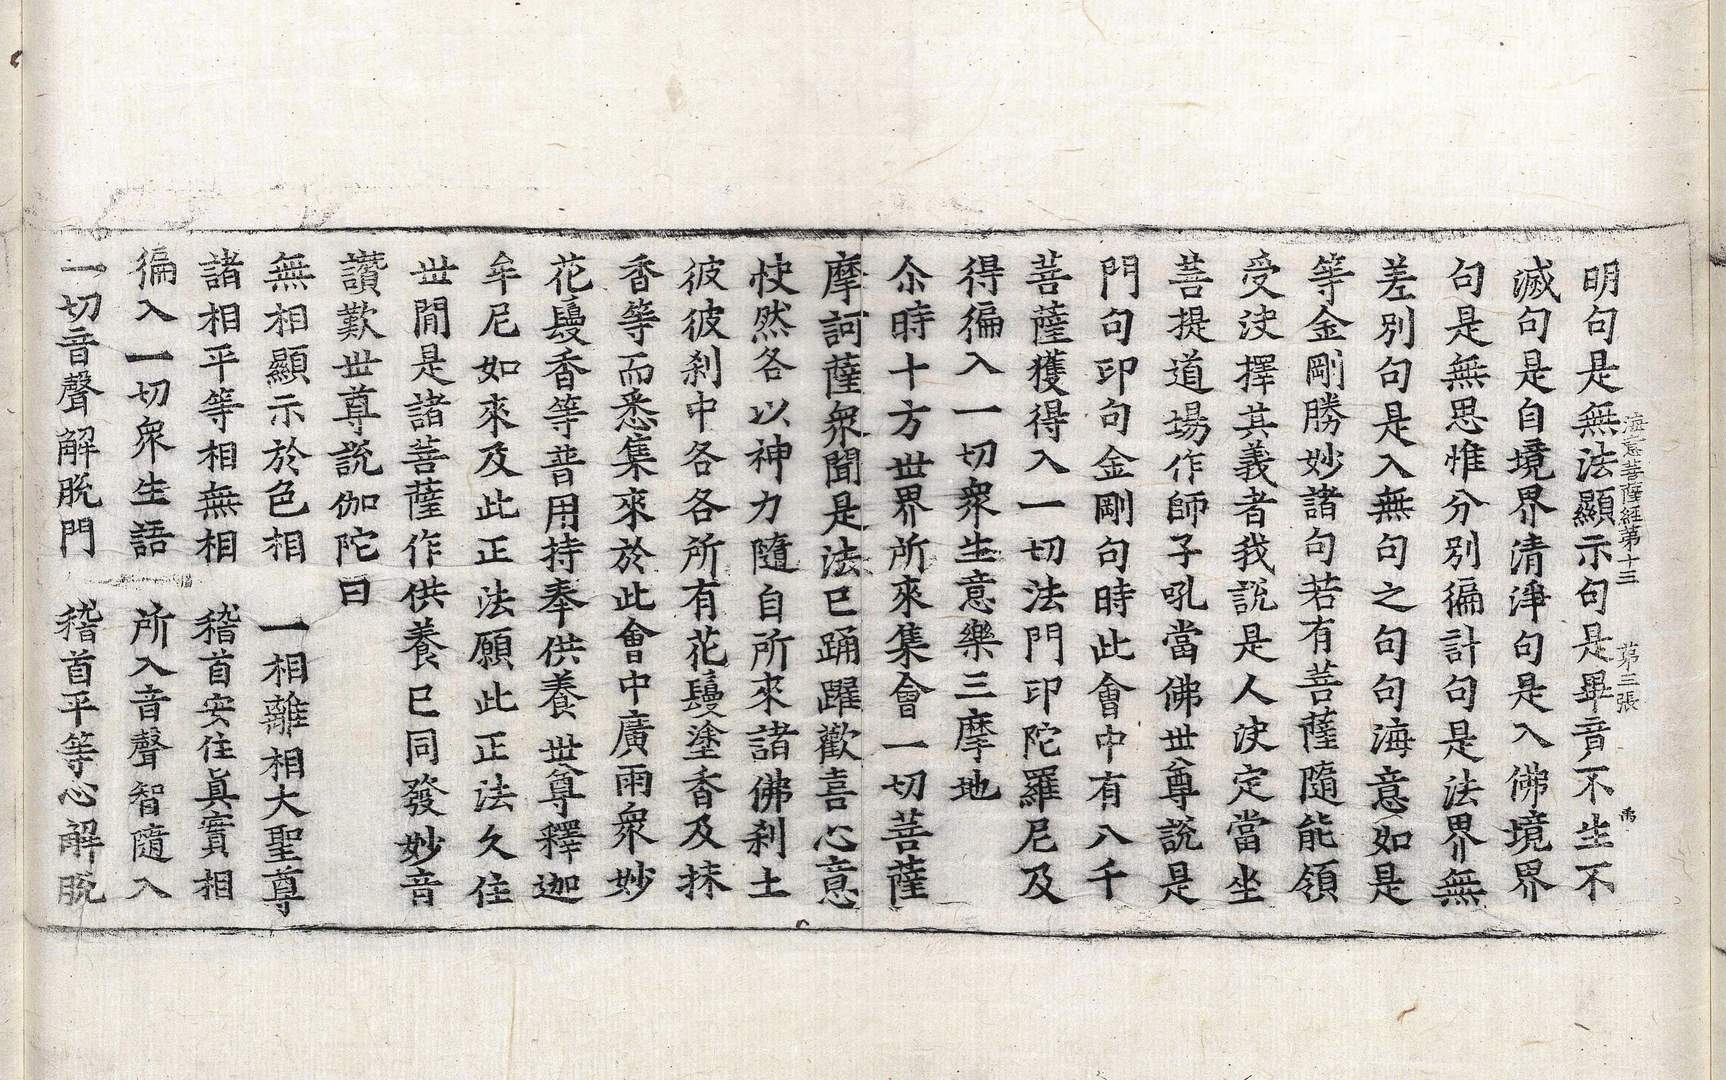 海意菩薩經第十三　第三張　禹
明句是無法顯示句是畢音不生不
滅句是自境界清淨句是入佛境界
句是無思惟分別徧計句是法界無
差別句是入無句之句句海意如是
等金剛勝妙諸句若有菩薩隨能領
受決擇其義者我說是人決定當坐
菩提道場作師子吼當佛世尊說是
門句印句金剛句時此會中有八千
菩薩獲得入一切法門印陀羅尼及
得徧入一切衆生意樂三摩地
尒時十方世界所來集會一切菩薩
摩訶薩衆聞是法已踊躍歡喜心意
快然各以神力隨自所來諸佛刹土
彼彼刹中各各所有花鬘塗香及抹
香等而悉集來於此會中廣雨衆妙
花鬘香等普用持奉供養世尊釋迦
牟尼如來及此正法願此正法久住
世閒是諸菩薩作供養已同發妙音
讚歎世尊說伽陀曰
無相顯示於色相　一相離相大聖尊
諸相平等相無相　稽首安住眞實相
徧入一切衆生語　所入音聲智隨入
一切音聲解脫門　稽首平等心解脫